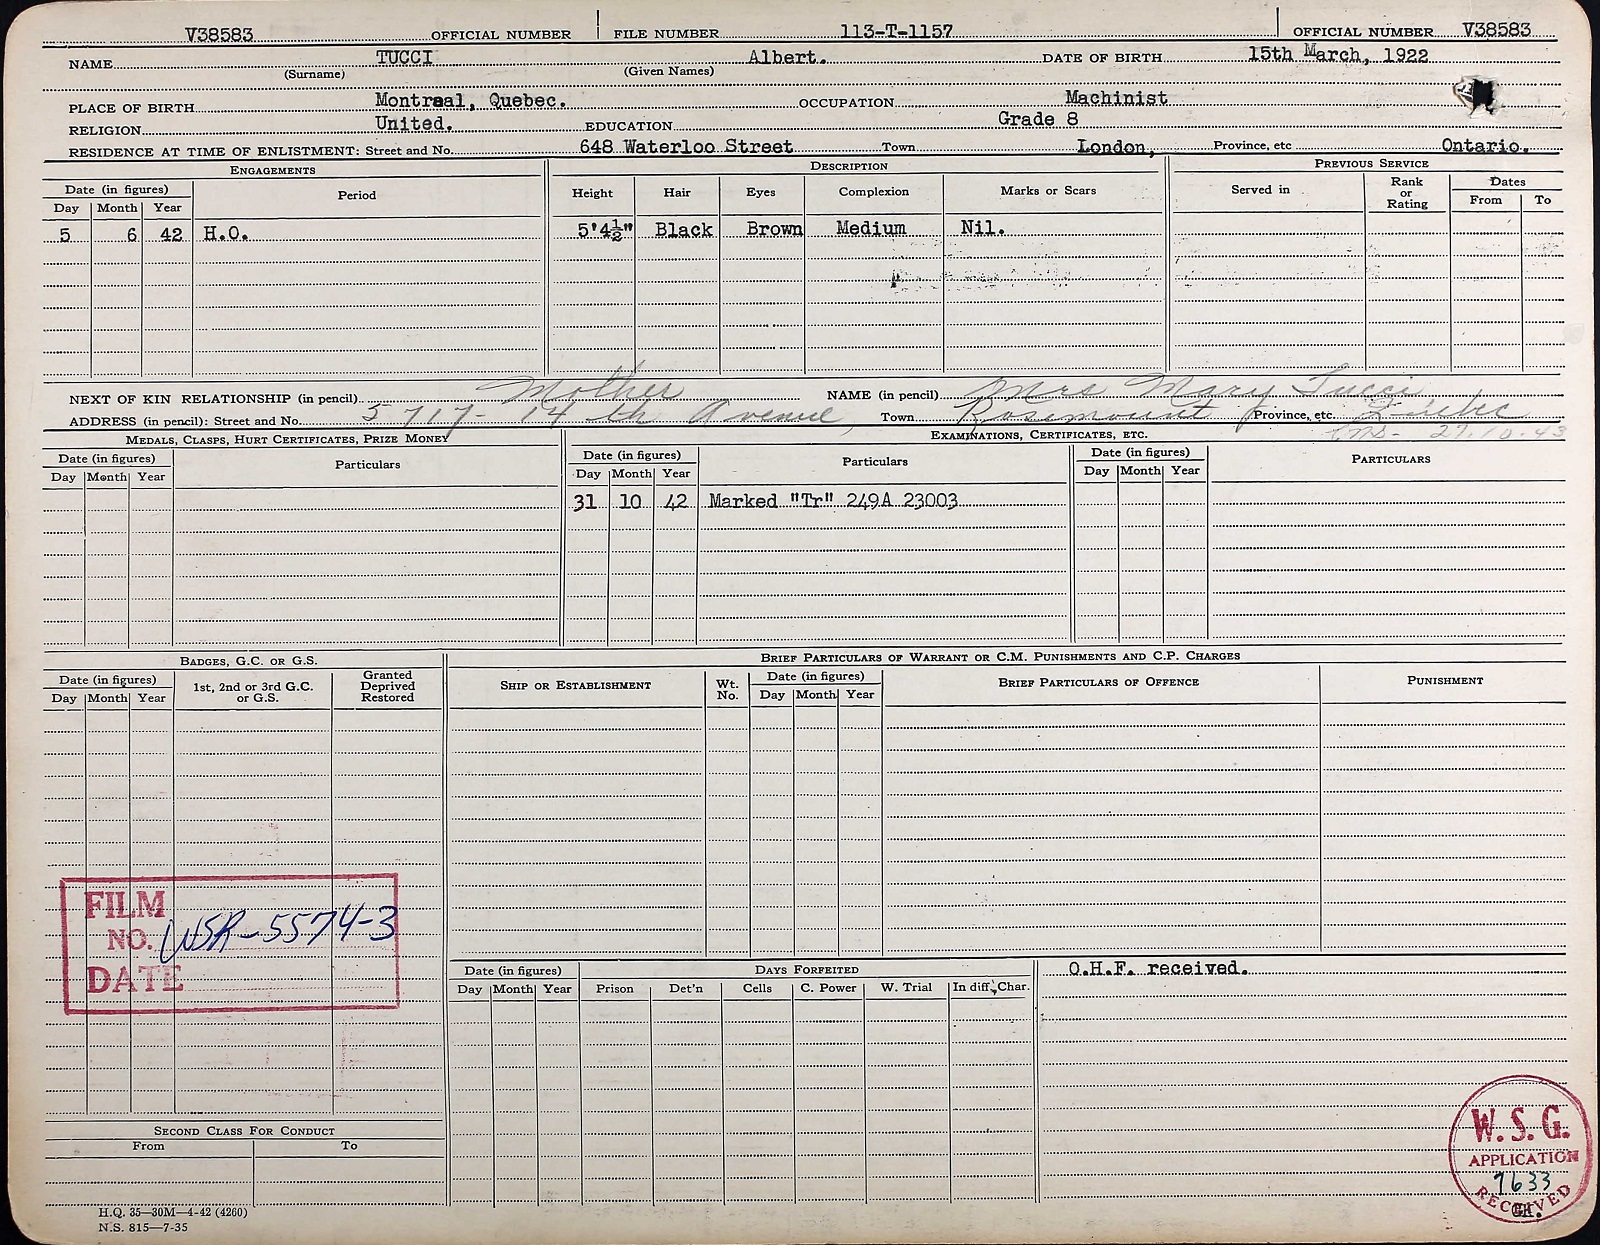 V38583 OFFICIAL NUMBER FILE NUMBER 113-T-1157 OFFICIAL NUMBER V38583
NAME TUCCI Albert. DATE OF BIRTH 15th March, 1922
(Surname) (Given Names)
PLACE OF BIRTH Montreal, Quebec. OCCUPATION Machinist
RELIGION United. EDUCATION Grade 8
RESIDENCE AT TIME OF ENLISTMENT: Street and No. 648 Waterloo Street Town London, Province, etc Ontario.
ENGAGEMENTS DESCRIPTION PREVIOUS SERVICE
Date (in figures) Period Height Hair Eyes Complexion Marks or Scars Served in Rank or Rating Dates
Day Month Year From To
5 6 42 H.O. 5'4½" Black Brown Medium Nil.
NEXT OF KIN RELATIONSHIP (in pencil) Mother NAME (in pencil) Mrs Mary Tucci
ADDRESS (in pencil): Street and No. 5717- 14 th Avenue, Town Rosemount Province, etc. Quebec
27.10.43
MEDALS, CLASPS, HURT CERTIFICATES, PRIZE MONEY EXAMINATIONS, CERTIFICATES, ETC.
Date (in figures) Particulars Date (in figures) Particulars Date (in figures) PARTICULARS
Day Month Year Day Month Year Day Month Year
31 10 42 Marked "Tr" 249A 23003
BADGES, G.C. OR G.S. BRIEF PARTICULARS OF WARRANT OR C.M. PUNISHMENTS AND C.P. CHARGES
Date (in figures) 1st, 2nd or 3rd G.C. or G.S. Granted Deprived Restored SHIP OR ESTABLISHMENT Wt. No. Date (in figures) BRIEF PARTICULARS OF OFFENCE PUNISHMENT
Day Month Year Day Month Year
FILM
NO. WSR-5574-3
DATE
Date (in figures) DAYS FORFEITED O.H.F. received.
Day Month Year Prison Det'n Cells C. Power W. Trial In diff. Char.
SECOND CLASS FOR CONDUCT
From To
W.S.G.
APPLICATION
7633
RECEIVED
H.Q. 35—30M—4-42 (4260)
N.S. 815—7-35